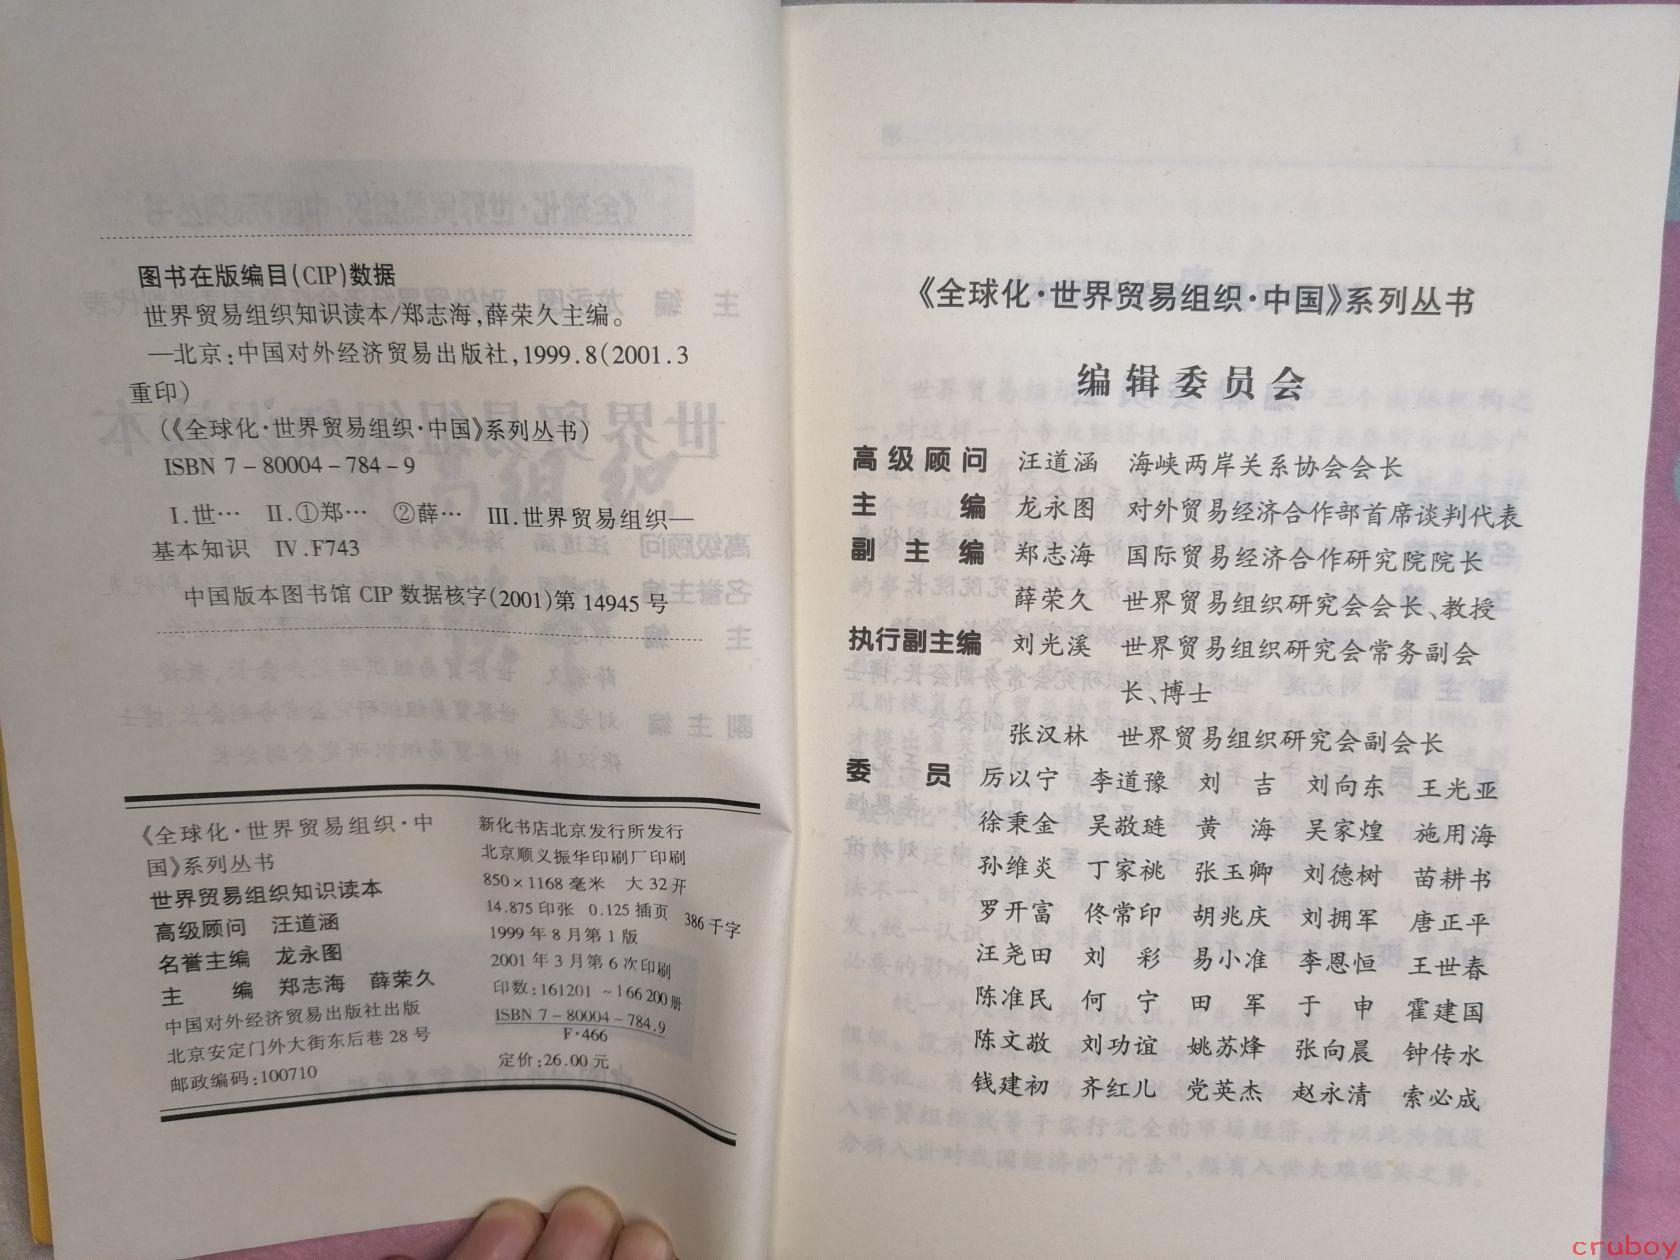 图书在版编目(CIP)数据
世界贸易组织知识读本/郑志海,薛荣久主编。
—北京:中国对外经济贸易出版社,1999.8(2001.3
重印)
(《全球化·世界贸易组织·中国》系列丛书)
ISBN 7-80004-784-9
Ⅰ.世… Ⅱ.①郑… ②薛… Ⅲ.世界贸易组织—
基本知识 Ⅳ.F743
中国版本图书馆 CIP 数据核字(2001)第 14945 号
《全球化·世界贸易组织·中
国》系列丛书
世界贸易组织知识读本
高级顾问 汪道涵
名誉主编 龙永图
主 编 郑志海 薛荣久
中国对外经济贸易出版社出版
北京安定门外大街东后巷 28 号
邮政编码:100710
新化书店北京发行所发行
北京顺义振华印刷厂印刷
850×1168 毫米 大 32 开
14.875 印张 0.125 插页 386 千字
1999 年 8 月第 1 版
2001 年 3 月第 6 次印刷
印数:161201 ~ 166200 册
ISBN 7-80004-784.9
F·466
定价:26.00 元
《全球化·世界贸易组织·中国》系列丛书
编辑委员会
高级顾问 汪道涵 海峡两岸关系协会会长
主 编 龙永图 对外贸易经济合作部首席谈判代表
副 主 编 郑志海 国际贸易经济合作研究院院长
薛荣久 世界贸易组织研究会会长、教授
执行副主编 刘光溪 世界贸易组织研究会常务副会
长、博士
张汉林 世界贸易组织研究会副会长
委 员 厉以宁 李道豫 刘 吉 刘向东 王光亚
徐秉金 吴敬琏 黄 海 吴家煌 施用海
孙维炎 丁家祧 张玉卿 刘德树 苗耕书
罗开富 佟常印 胡兆庆 刘拥军 唐正平
汪尧田 刘 彩 易小准 李恩恒 王世春
陈准民 何 宁 田 军 于 申 霍建国
陈文敬 刘功谊 姚苏烽 张向晨 钟传水
钱建初 齐红儿 党英杰 赵永清 索必成
cruboy